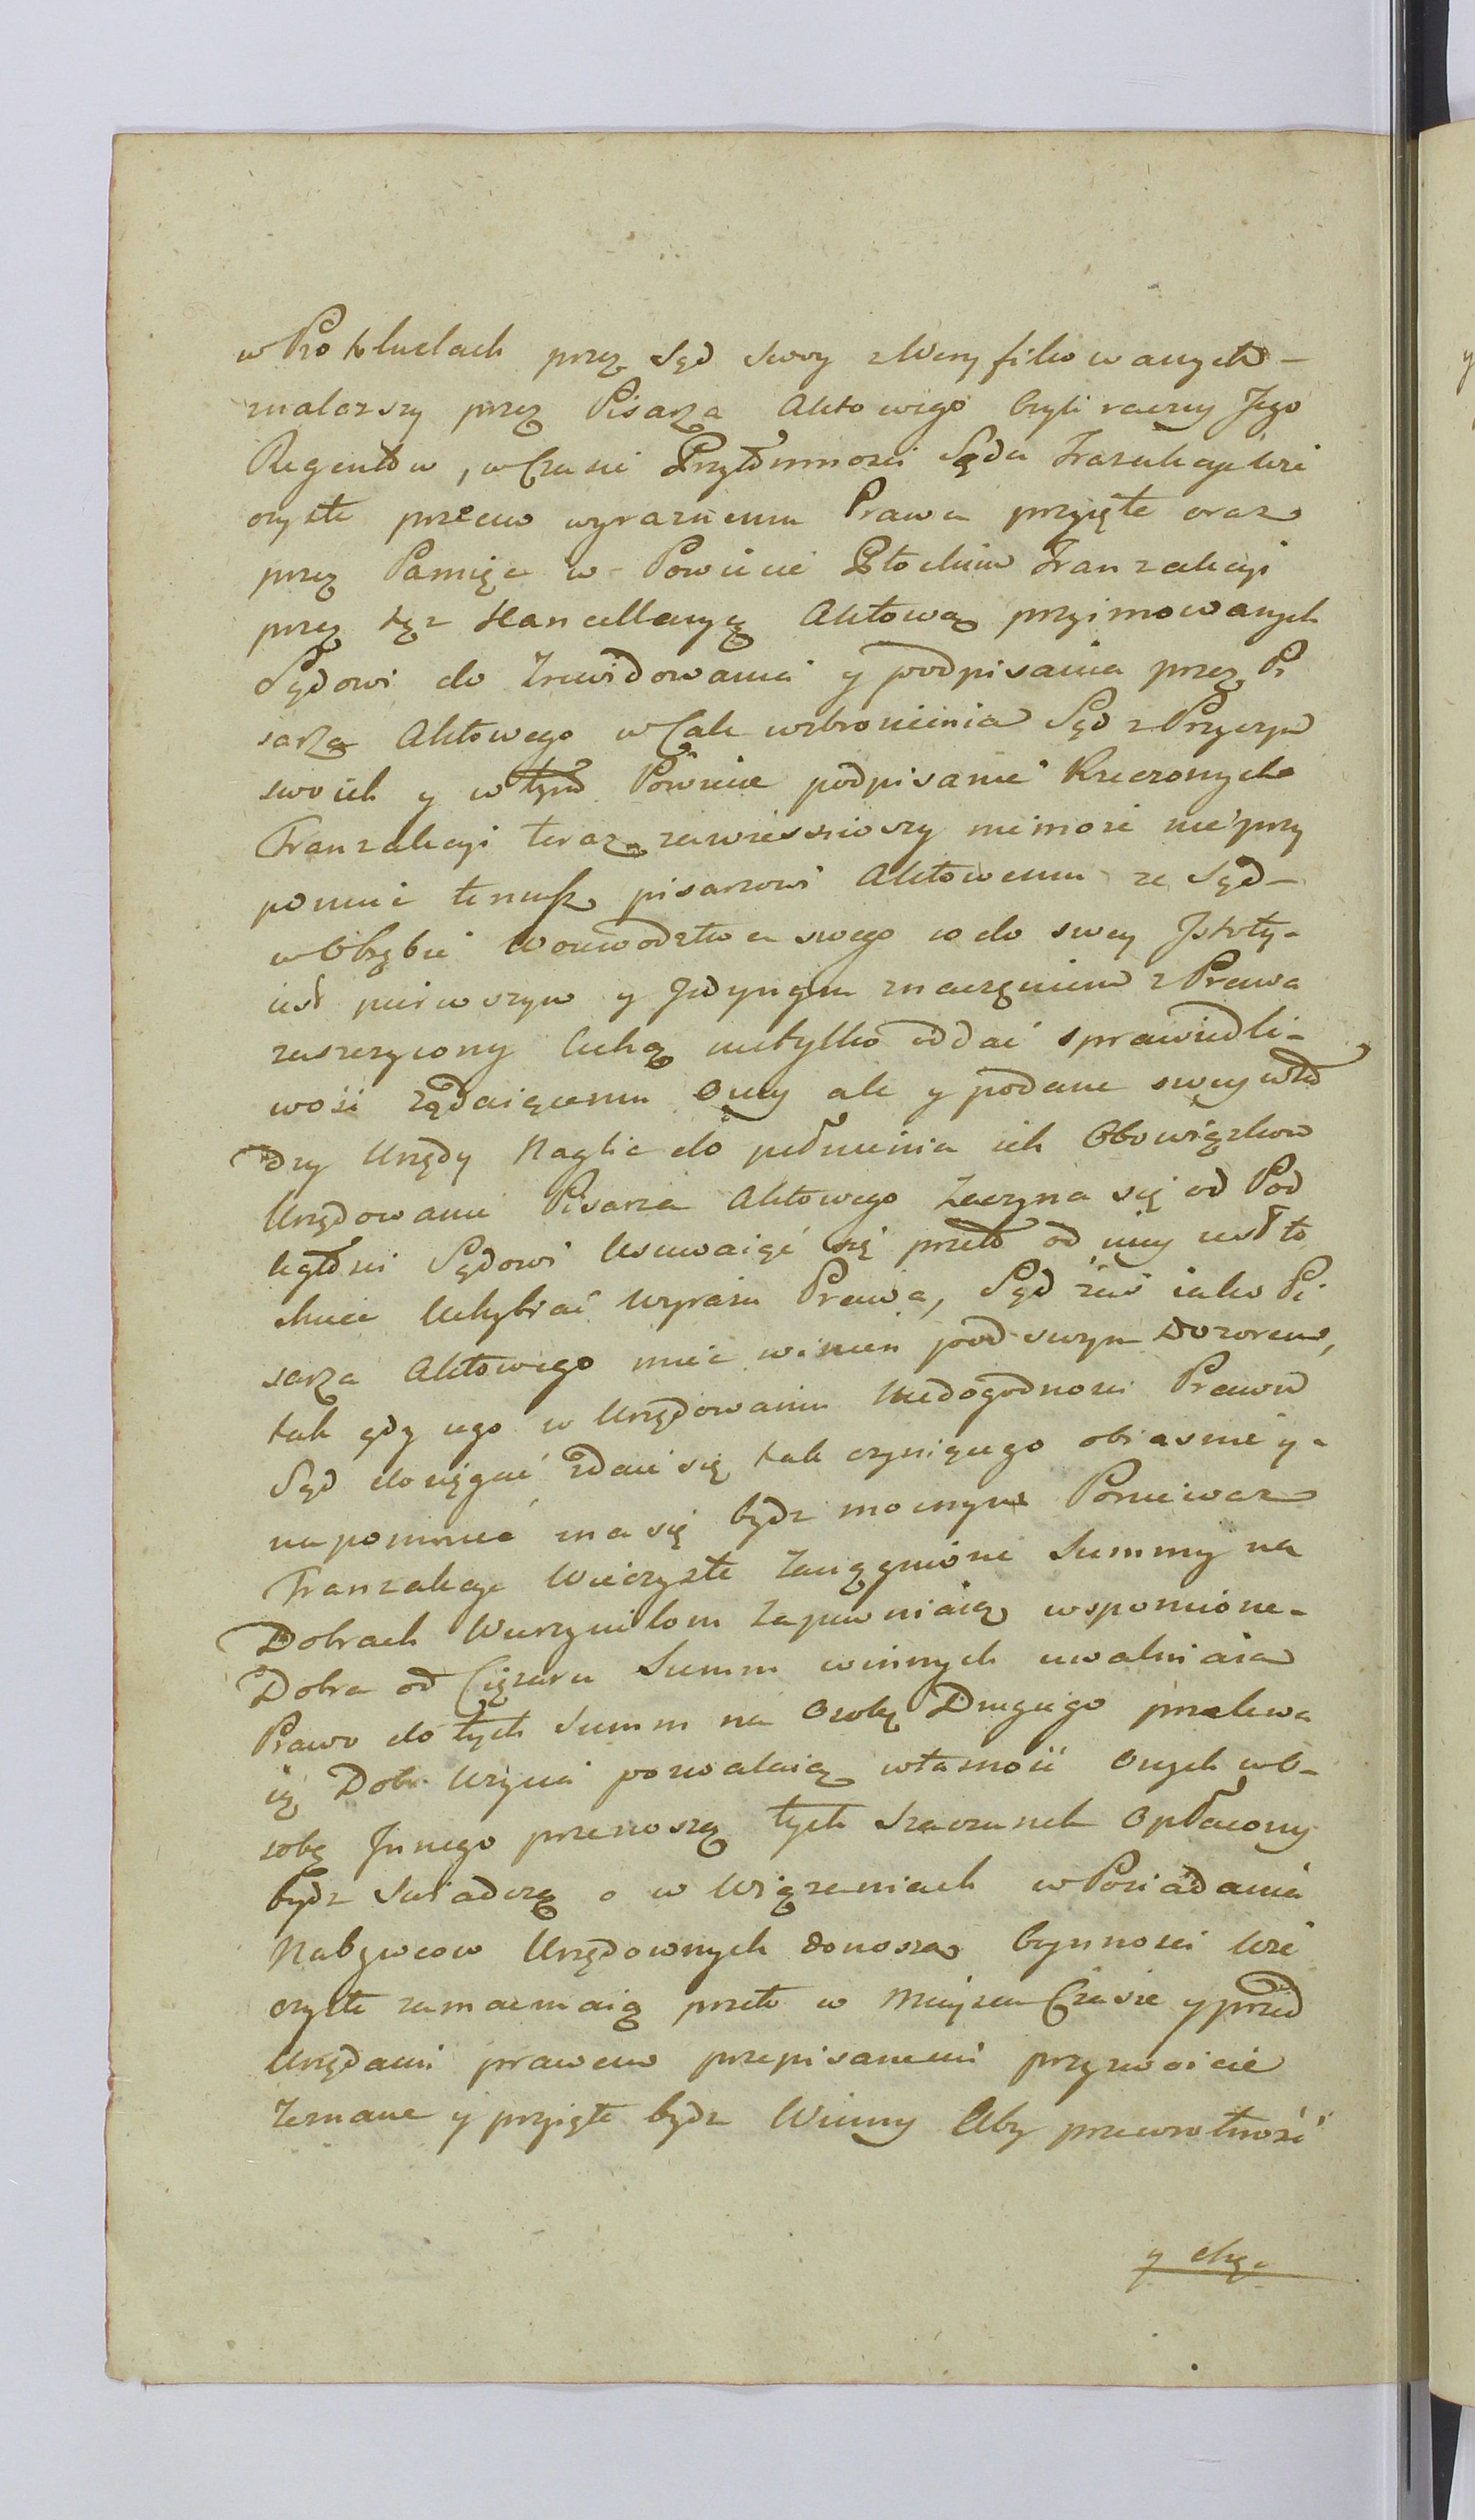 w Protokułach przez Sąd Swoy zWeryfikowanych –
znalazszy przez Pisarza Aktowego Czyli raczey Jego
Regentów, w Czasie Przytomnosci Sądu Tranzakcje Wie
czyste przeciw wyraznemu Prawu przyięte oraz
przez Pamięc w Powiecie Płockim Tranzakcji
przez tęż Kancellaryę Aktową przyimowanych
Sądowi do Zrewidowania y podpisania przez Pi
sarza Aktowego w Cale wzbronienia Sąd z Przyczyn
swoich y w tym Powiecie podpisanie Rzeczonych
Tranzakcji teraz zawiesiwszy niemoże nieprzy
pomnieć temuż pisarzowi Aktowemu ze Sąd –
w Obrębie Wojewodztwa swego co do swey Jstoty
iest pierwszym y Jedynym znaczeniem z Prawa
zaszczycony Cechą nietylko oddać sprawiedli-
wość żądaiącemu Oney ale y podane swey wła
dzy Urzędy Naglić do pełnienia ich Obowiązkow
Urzędowanie Pisarza Aktowego Zaczyna się od Pod
ległosci Sądowi Usuwaiąć się przeto od niey iest to
chcieć Uchybiać wyrazu Prawa, Sąd zaś iako Pi
sarza Aktowego mieć winien pod swym Dozorem,
tak gdy iego w Urzędowaniu Niedogodnosci Prawu
Sąd dosięgać zdaie się tak czyniącego obiasnić y-
napomnieć zna się bydz mocnym Ponieważ
Tranzakcje Wieczyste Zaciągnione Summy na
Dobrach Wierzycielom Zapewniaią wspomione-
Dobra od Ciężaru Summ winnych uwalniaia
Prawo do tych Summ na Osobę Drugiego przelewa
ią Dobr Użycia pozwalaią własność Onych w O-
sobę Jnnego przenoszą tych Szacunek Opłacony
bydz Swiadczą o w Wiązaniach w Posiadanie
Nabywcow Urzędownych donoszą Czynnosci Wie
czyste zamacniaią przeto w Mieyscu Czasie y przed
Urzędami prawem przepisanemi przyzwoicie
Zeznane y przyięte bydz Winny Aby przewrotność
y chę-